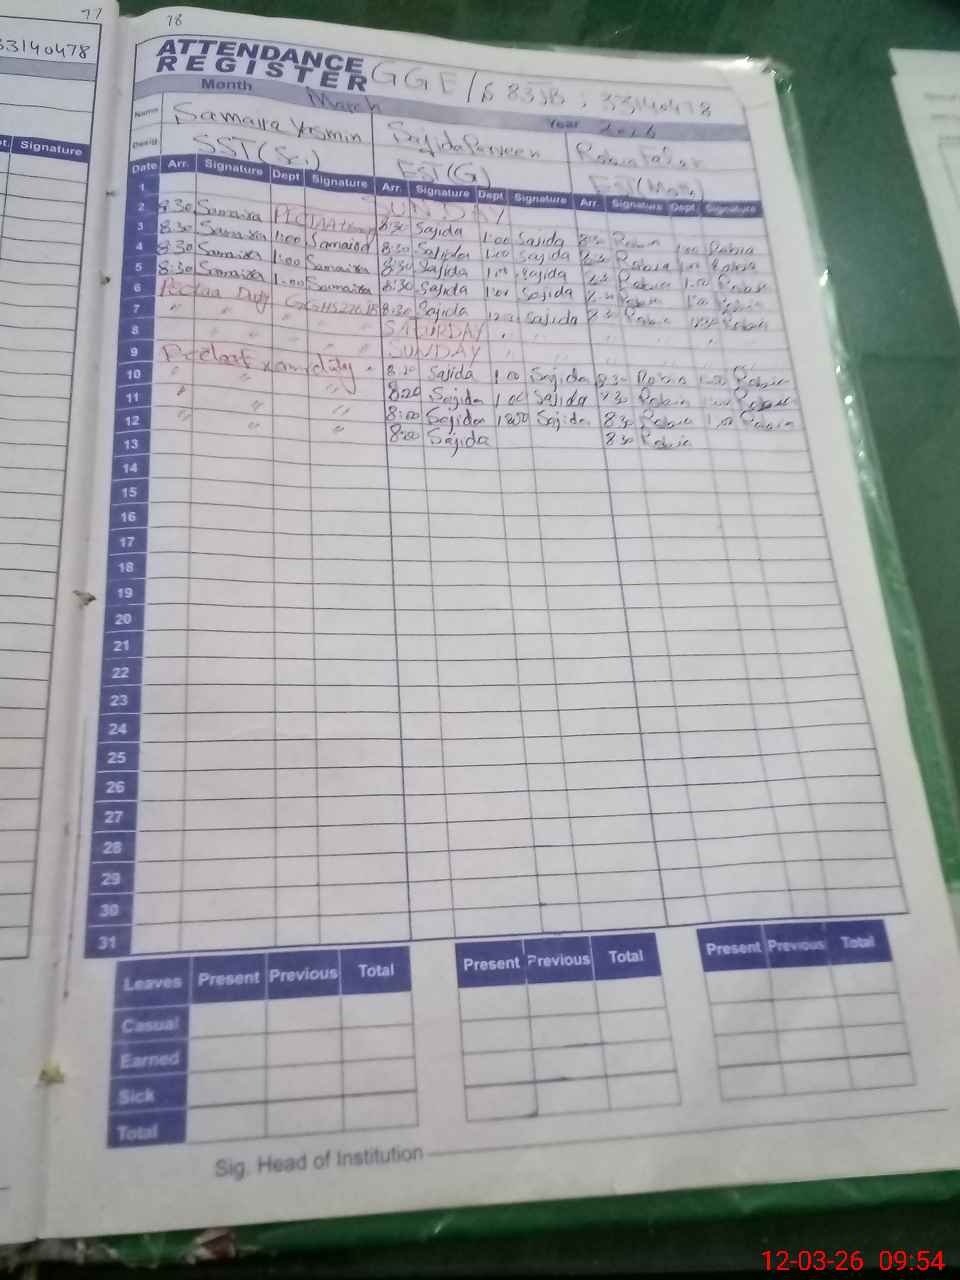 77
33140478
Signature
78
ATTENDANCE
REGISTER
GGE/S 83JB ; 33140478
Month March Year 2026
Name Samaira Yasmin Sajida Parveen Rabia
Desig. SST(Sc.) EST(G)
Date Arr. Signature Dept Signature Arr. Signature Dept Signature Arr. Signature Dept Signature
1 SUNDAY
2 8:30 Samaira 8:30 Sajida 1:00 Sajida 8:30 Rabia 1:00 Rabia
3 8:30 Samaira 1:00 Samaira 8:30 Sajida 1:00 Sajida Rabia 1:00 Rabia
4 8:30 Samaira 1:00 Samaira 8:30 Sajida 1:00 Sajida Rabia 1:00 Rabia
5 8:30 Samaira 1:00 Samaira 8:30 Sajida 1:00 Sajida Rabia 1:00 Rabia
6 Pectaa Duty 8:30 Sajida Sajida Rabia Rabia
7 " " " SATURDAY
8 SUNDAY
9 duty Sajida 1:00 Sajida 8:30 Rabia 1:00 Rabia
10 " " " 8:00 Sajida 1:00 Sajida 8:30 Rabia Rabia
11 " " " 8:00 Sajida Sajida 8:30 Rabia 1:00 Rabia
12 " " " 8:00 Sajida 8:30 Rabia
13
14
15
16
17
18
19
20
21
22
23
24
25
26
27
28
29
30
31
Leaves Present Previous Total Present Previous Total Present Previous Total
Casual
Earned
Sick
Total
Sig. Head of Institution
12-03-26 09:54